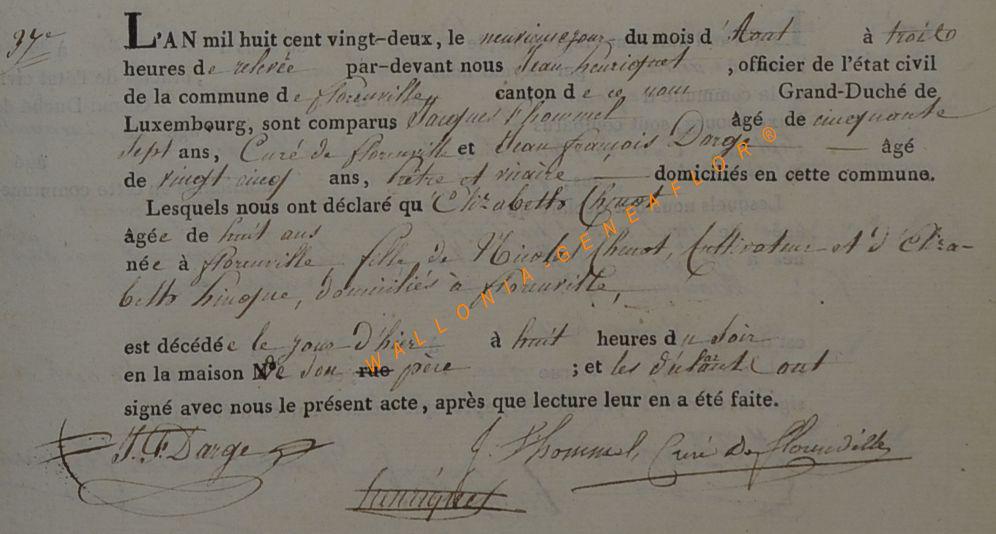 37e L'AN mil huit cent vingt-deux, le neuvieme jour du mois d'Aout à trois
heures de relevée par-devant nous Jean henriquet, officier de l'état civil
de la commune de florenville canton de ce nom Grand-Duché de
Luxembourg, sont comparus Jacques Thommel âgé de cinquante
sept ans, Curé de florenville et Jean françois Darge âgé
de vingt cinq ans, prêtre et vicaire domiciliés en cette commune.
Lesquels nous ont déclaré qu'Elizabeth Chenot
âgée de huit ans
née à florenville fille de Nicolas Chenot, Cultivateur et d'Eliza-
beth hinque, domiciliés à florenville,
est décédée le jour d'hier à huit heures du soir
en la maison de son rue père ; et les déclarants ont
signé avec nous le présent acte, après que lecture leur en a été faite.
J. F Darge J. Thommel, Curé De florenville
henriquet
WALLONIA-GENEAFLOR®